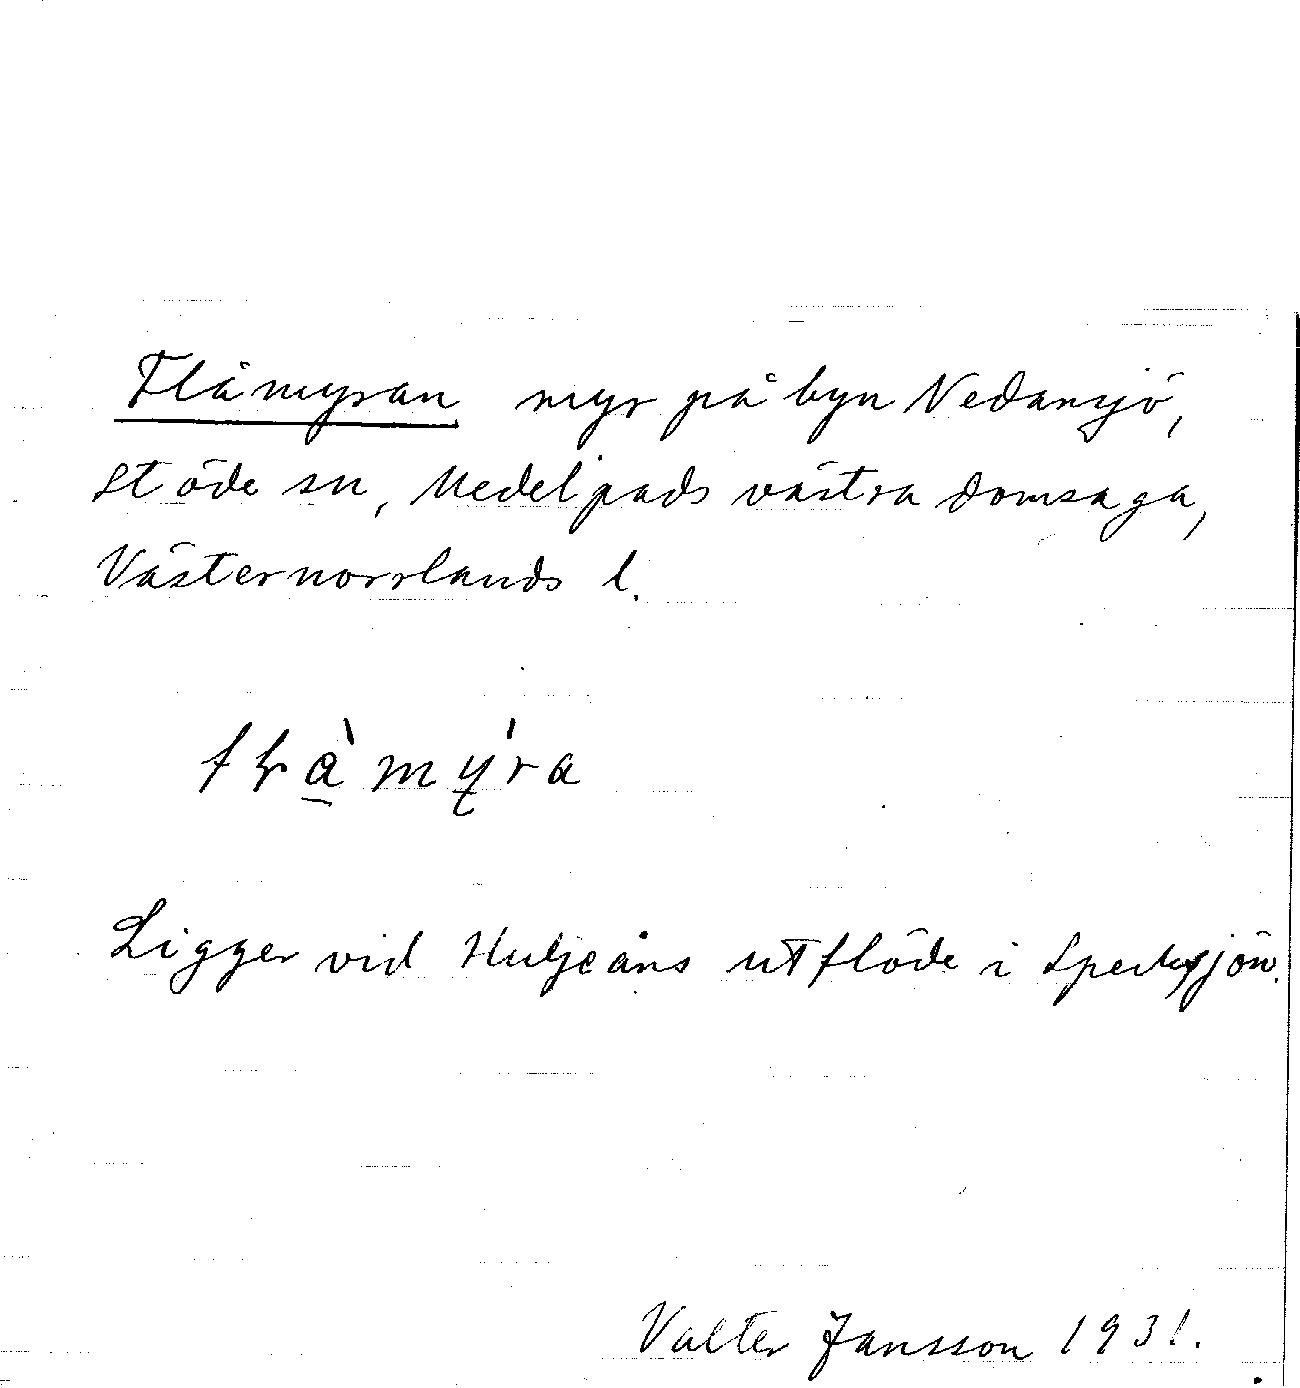 Flåmyran myr på byn Nedansjö,
Stöde sn, Medelpads västra domsaga,
Västernorrlands l.
Ligger vid Huljeåns utflöde i
Valter Jansson 1931.